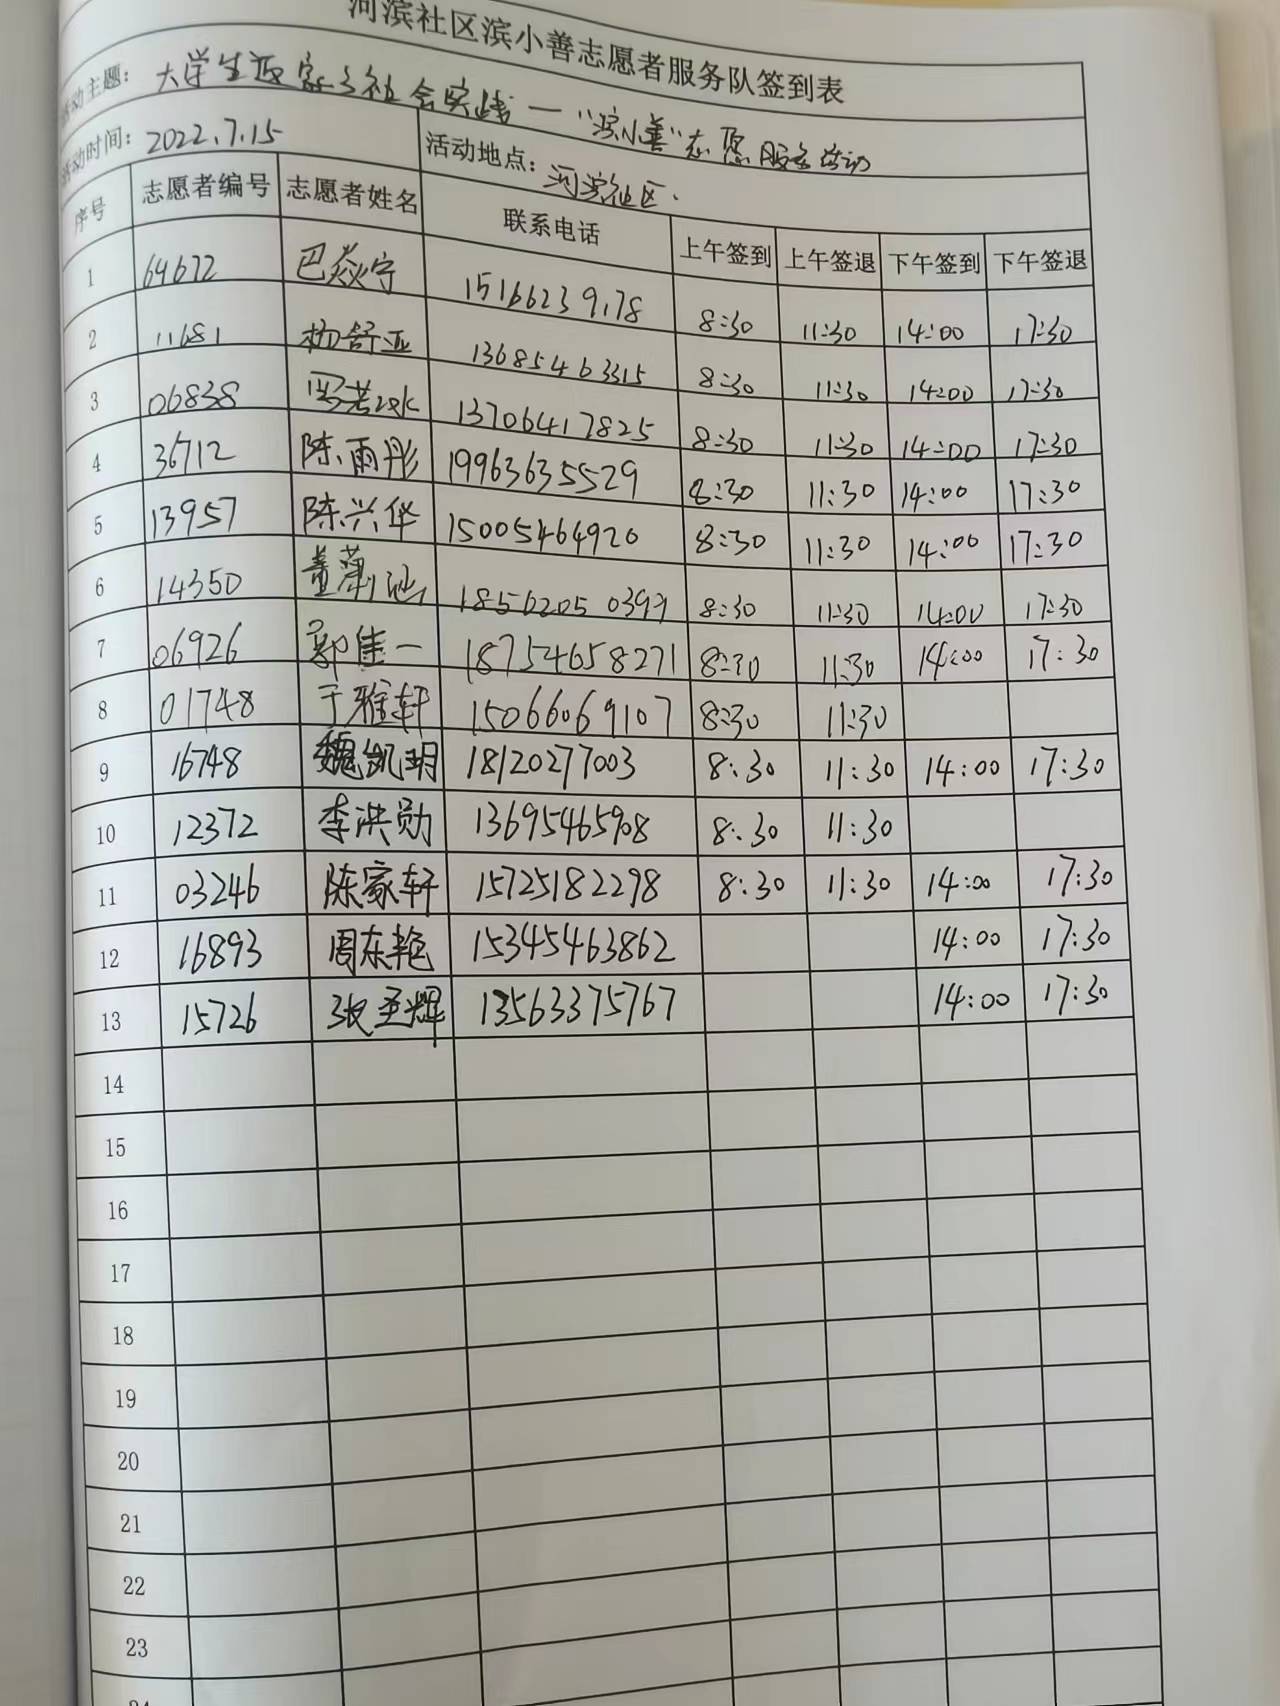 河滨社区滨小善志愿者服务队签到表
活动主题： 大学生返家乡社会实践—“滨小善”志愿服务活动
活动时间： 2022.7.15 活动地点： 河滨社区.
序号 志愿者编号 志愿者姓名 联系电话 上午签到 上午签退 下午签到 下午签退
1 64672 巴焱宁 15166239178 8:30 11:30 14:00 17:30
2 11681 杨舒亚 13685463315 8:30 11:30 14:00 17:30
3 06838 13706417825 8:30 11:30 14:00 17:30
4 36712 陈雨彤 19963635529 8:30 11:30 14:00 17:30
5 13957 陈兴华 15005464920 8:30 11:30 14:00 17:30
6 14350 董 8:30 11:30 14:00 17:30
7 06926 郭佳一 18754658271 8:30 11:30 14:00 17:30
8 01748 于雅轩 15066069107 8:30 11:30
9 16748 魏凯玥 18120277003 8:30 11:30 14:00 17:30
10 12372 李洪勋 13695465908 8:30 11:30
11 03246 陈家轩 15725182298 8:30 11:30 14:00 17:30
12 16893 周东艳 15345463862 14:00 17:30
13 15726 张圣辉 13563375767 14:00 17:30
14
15
16
17
18
19
20
21
22
23
24